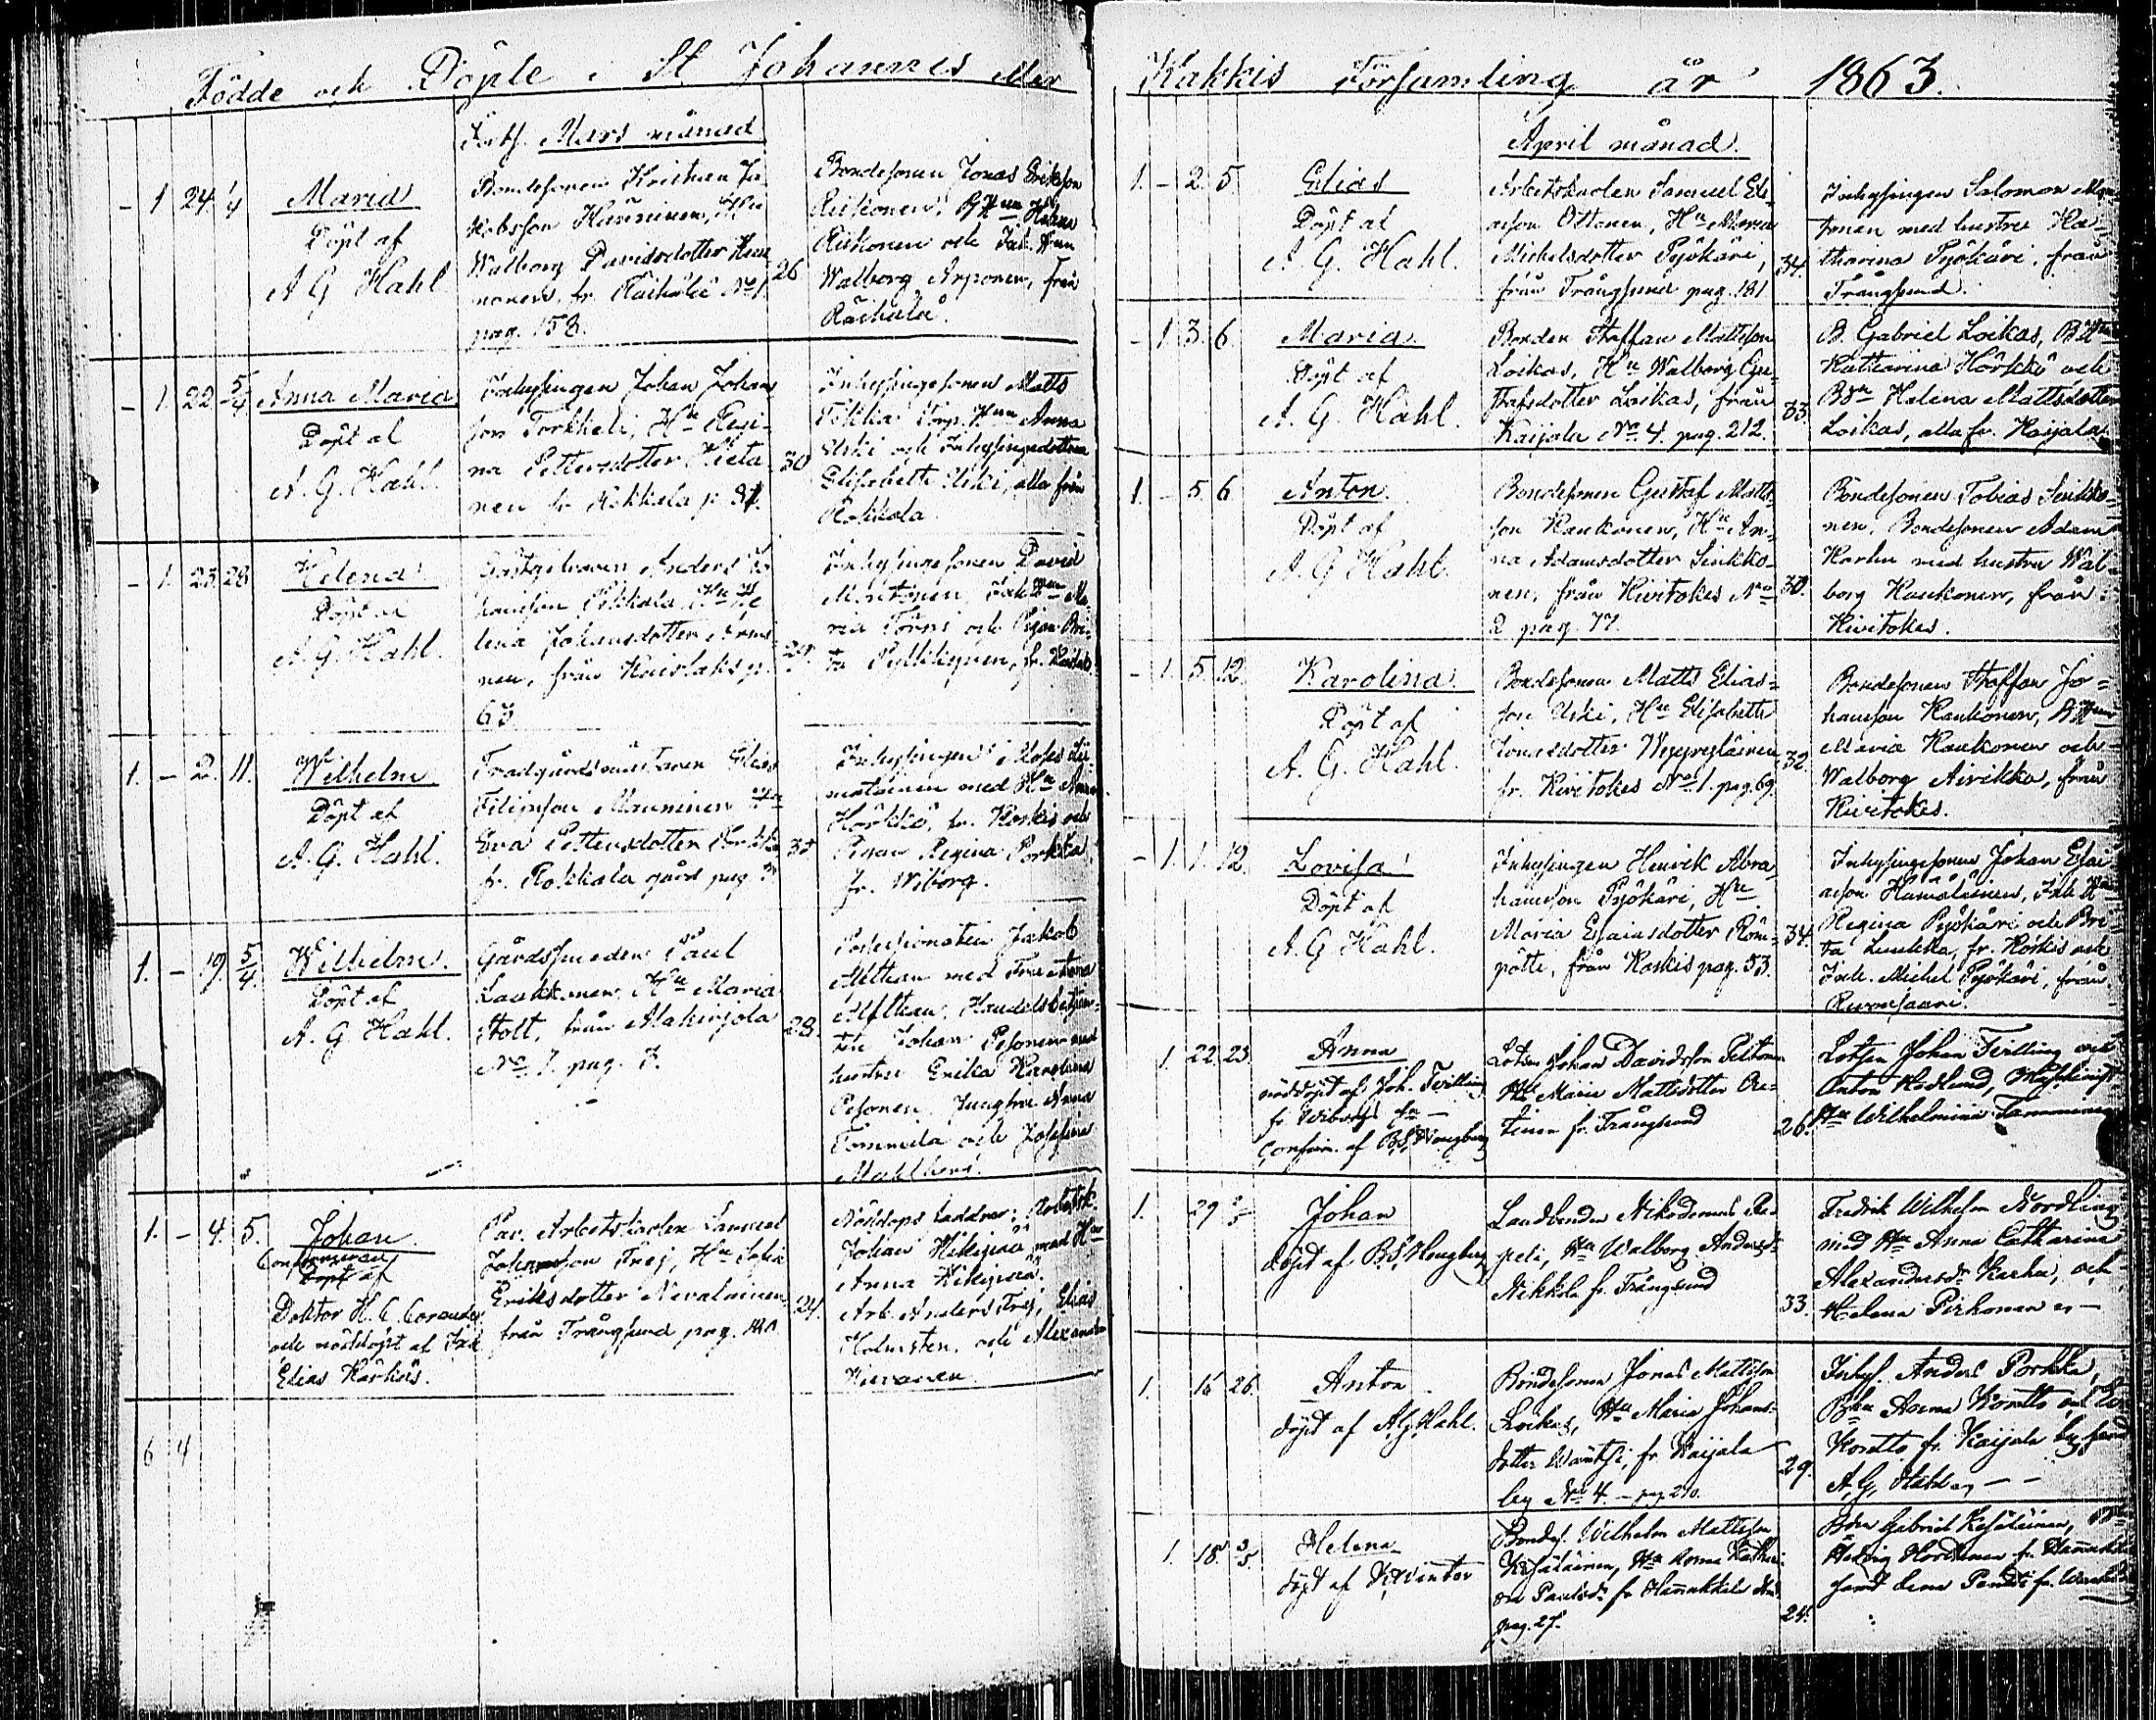 Födde och Döpte i St Johannes eller
Forts. Mars månad
- 1 24. 1/4 Maria
Döpt af
A G Hahl
Bondesonen Kristian Ja
kobsson Hänninen, Hu
Walborg Davidsdotter
nonen, fr. Räihälä No 1
pag. 158.
26
Bondesonen Jonas Eriksson
Riikonen, BHun Helena
Riikonen och Inh. Hun
Walborg Arponen, från
Räihälä.
- 1. 22. 5/4 Anna Maria
Döpt af
A. G. Hahl.
Inhysingen Johan Johans
son Torkkeli, Hu Regi-
na Pettersdotter Hieta
nen fr Rokkala p. 81.
30
Inhysingesonen Matts
Pökkiä Torp. Hun Anna
Uski och Inhysingedottren
Elisabeth Uski, alla från
Rokkala
- 1. 23. 28 Helena
Döpt af
A. G. Hahl.
Gästgifvaren Anders Jo
hansson Pekkala, Hu He
lena Johansdotter
nen, från Kaislaks p.
63.
29.
Inhysingesonen David
Mentonen, Inh Hun Ma
ria Törni och Pigan Bri-
ta Pylkkynen, fr. Kaislaks
1. - 2. 11. Wilhelm
Döpt af
A. G. Hahl.
Trädgårdsmästaren Elias
Filipsson Manninen Hu
Eva Pettersdotter
fr. Rokkala gård pag.
Inhysingen Moses
matainen med Hu Anna
Hörkkö, fr. Koskis och
Pigan Regina Porkka
fr. Wiborg.
1. - 19. 5/4. Wilhelm.
Döpt af
A. G. Hahl.
Gårdssmeden Paul
Laukkanen Hu Maria
Stolt, från Alakirjola
No 7. pag. 7.
28.
Possessionaten Jakob
Alfthan med Fru Anna
Alfthan, Handelsbetjen-
ten Johan Pesonen med
hustru Erika Karolina
Pesonen. Jungfru Anna
Tommila och Josefina
Mahlberg.
1. - 4. 5. Johan.
Confirmeran
Döpt af
Doktor H. C. Corander
och nöddöpt af Inh
Elias Kärkäs.
Pav. Arbetskarlen Samuel
Johansson Frej, Hu Sofia
Eriksdotter Nevalainen
från Trångsund pag. 180
24.
Nöddops faddrar: Arbetsk.
Johan Hikipää med Hu
Anna Hikipää.
Arb. Anders Frej, Elias
Holmsten, och Alexander
6 4
Kakkis Församling år 1863.
April månad.
1. - 2. 5. Elias
Döpt af
A. G. Hahl.
Arbetskarlen Samuel Eli-
asson Ottonen, Hu Maria
Michelsdotter Pyökäri,
från Trångsund pag. 181
34.
Inhysingen Salomon
tonen med hustru Ka-
tharina Pyökäri, från
Trångsund.
- 1. 3. 6. Maria.
Döpt af
A. G. Hahl.
Bonden Staffan Mattsson
Loikas, Hu Walborg Gu-
stafsdotter Loikas, från
Kaijala No 4. pag. 212.
33.
B. Gabriel Loikas, BHun
Katharina Hörkkö och
BDn Helena Mattsdotter
Loikas, alla fr. Kaijala
1. - 5 6 Anton.
Döpt af
A. G Hahl.
Bondesonen Gustaf Matts
son Kaukonen, Hu An-
na Adamsdotter Sinkko-
nen, från Kiritokes No
2 pag. 77.
30.
Bondesonen Tobias Sinkko-
nen, Bondesonen Adam
Karhu med hustru Wal-
borg Kaukonen, från
Kiritokes.
- 1. 5. 12. Karolina
Döpt af
A. G. Hahl.
Bondesonen Matts Elias-
son Uski, Hu Elisabeth
Jonasdotter
fr. Kiritokes No 1. pag. 69.
32.
Bondesonen Staffan Jo-
hansson Kaukonen, BHun
Maria Kaukonen och
Walborg Airikka, från
Kiritokes.
- 1. 1. 12. Lovisa
Döpt af
A. G. Hahl.
Inhysingen Henrik Abra
hamsson Pyökäri, Hu
Maria Esaiasdotter Röm-
pötti, från Koskis pag. 53.
34.
Inhysingesonen Johan Esai
asson Hämäläinen, Inh Hun
Regina Pyökäri och Bri-
ta Luukka, fr. Koskis och
Inh. Michel Pyökäri, från
Revonsaari.
1 22. 23. Anna
nöddöpt af Joh. Tvilling
fr Wiborg
Confirm. af B.S. Hougberg
Lotsen Johan Davidsson Peltonen
Hu Maria Mattsdotter
tinen fr. Trångsund
26.
Lotsen Johan Tvilling och
Anton Hedlund, Maskinist
Hu Wilhelmina Tamminen
1. 29 2/5 Johan
döpt af B.S. Hougberg
Landbonden Nikodemus
peli, Hu Walborg Andersd:
Nikkola fr. Trångsund
33.
Fredrik Wilhelm Nordling
med Hu Anna Catharina
Alexandersdr Karhu, och
Helena Pirhonen
1. 16 26. Anton
döpt af A.G. Hahl.
Bondesonen Jonas Mattsson
Loikas, Hu Maria Johans-
dotter Wäntsi, fr Kaijala
by No 4. - pag. 210.
29.
Inhys. Anders Porkka,
Bhu Anna Kontto och
Kontto fr. Kaijala by samt
A. G. Hahl
1. 18. 3/5. Helena
döpt af K Winter
Bondes. Wilhelm Mattsson
Kesäläinen, Hu Anna Kathari
na Paulsdr fr Hannukkala
pag. 27.
24.
Bdn Gabriel Kesäläinen,
Hedvig
samt